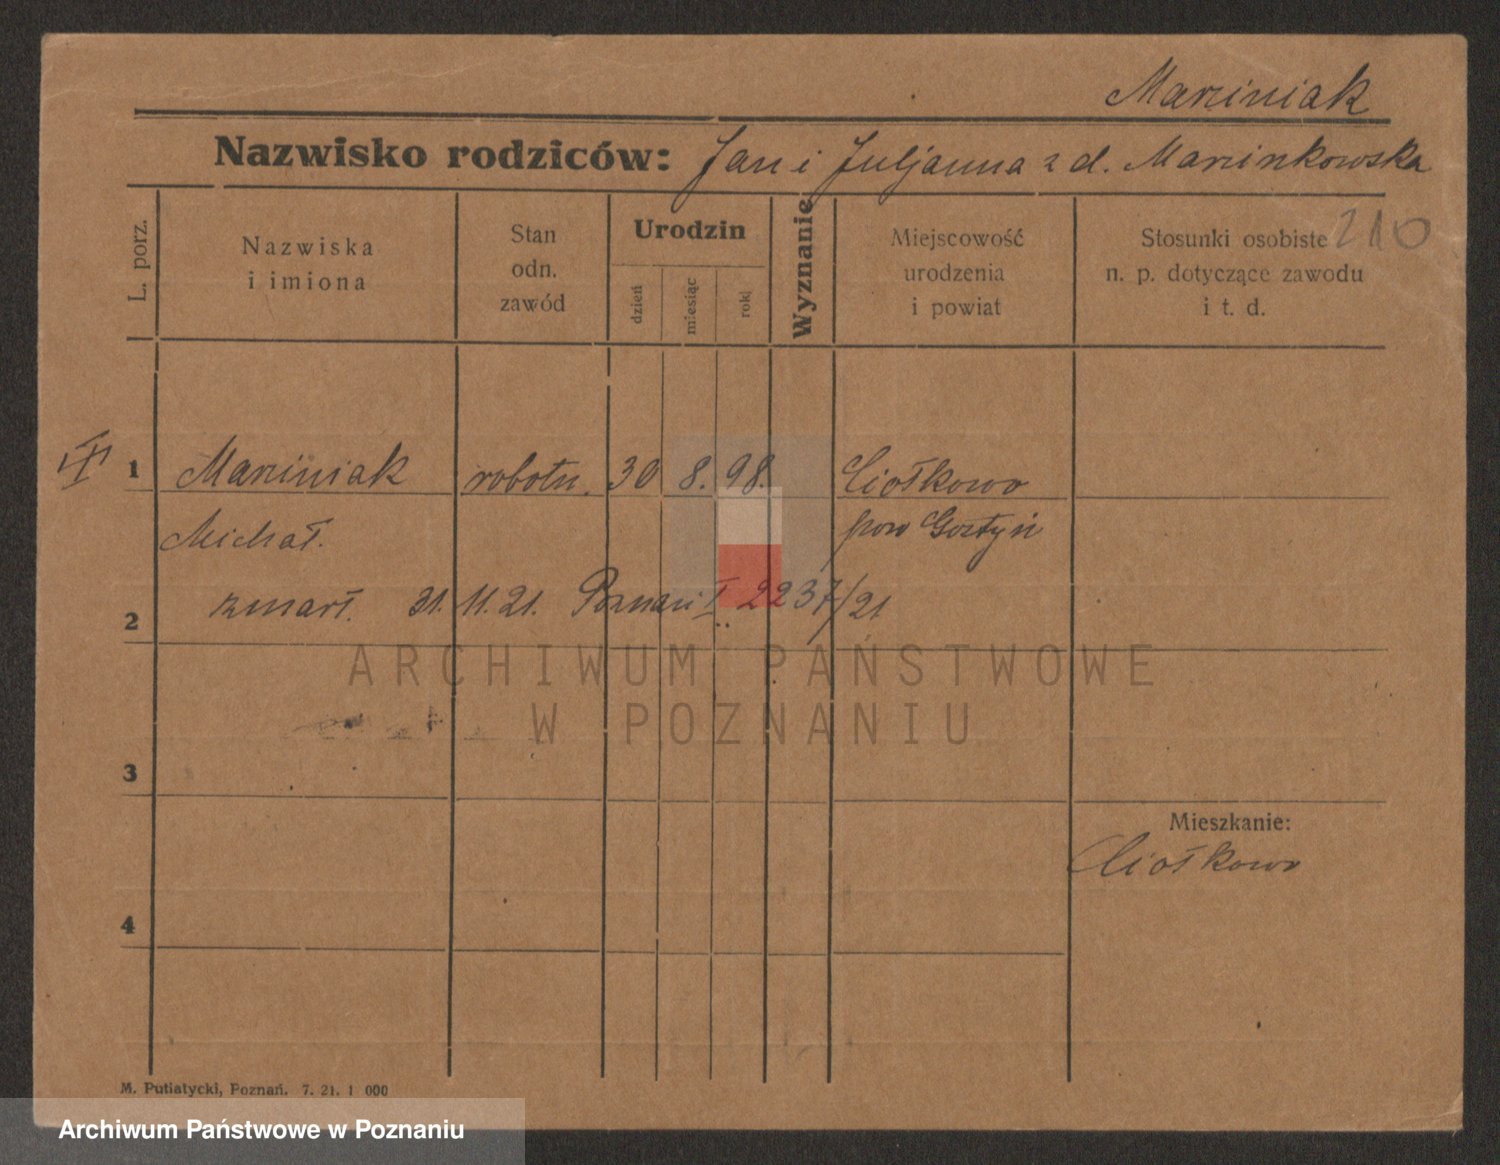 Marciniak
Nazwisko rodziców: Jan i Juljanna z d. Marcinkowska
L. porz.
Nazwiska
i imiona
Stan
odn.
zawód
Urodzin
dzień
miesiąc
rok
Wyznanie
Miejscowość
urodzenia
i powiat
Stosunki osobiste 210
n. p. dotyczące zawodu
i t. d.
1 Marciniak robotn. 30 8. 98. Ciołkowo
Michał. pow Gostyń
2 zmarł. 31. 11. 21. Poznań I 2237/21
ARCHIWUM PAŃSTWOWE
W POZNANIU
3
Mieszkanie:
Ciołkowo
4
M. Putiatycki, Poznań. 7. 21. 1 000
Archiwum Państwowe w Poznaniu